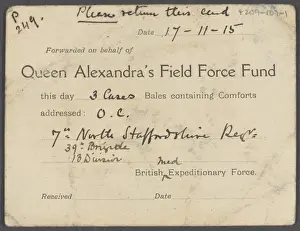 P
249.
Please return this card
8209-107-1
Date 17-11-15
Forwarded on behalf of
Queen Alexandra's Field Force Fund
this day 3 Cases Bales containing Comforts
addressed: O.C.
7th North Staffordshire Regt.
39th Brigade
13 Division
Med
British ^ Expeditionary Force.
Received Date